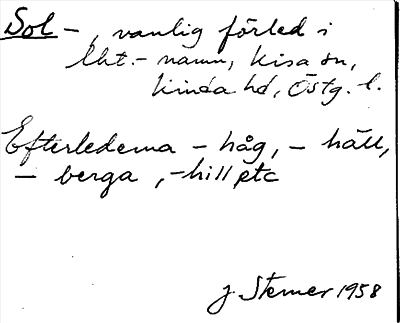 Sol -, vanlig förled i
lht.- namn, Kisa sn,
Kinda hd, Östg. l.
Efterlederna - håg, - häll,
- berga, -hill etc
J. Sterner 1958